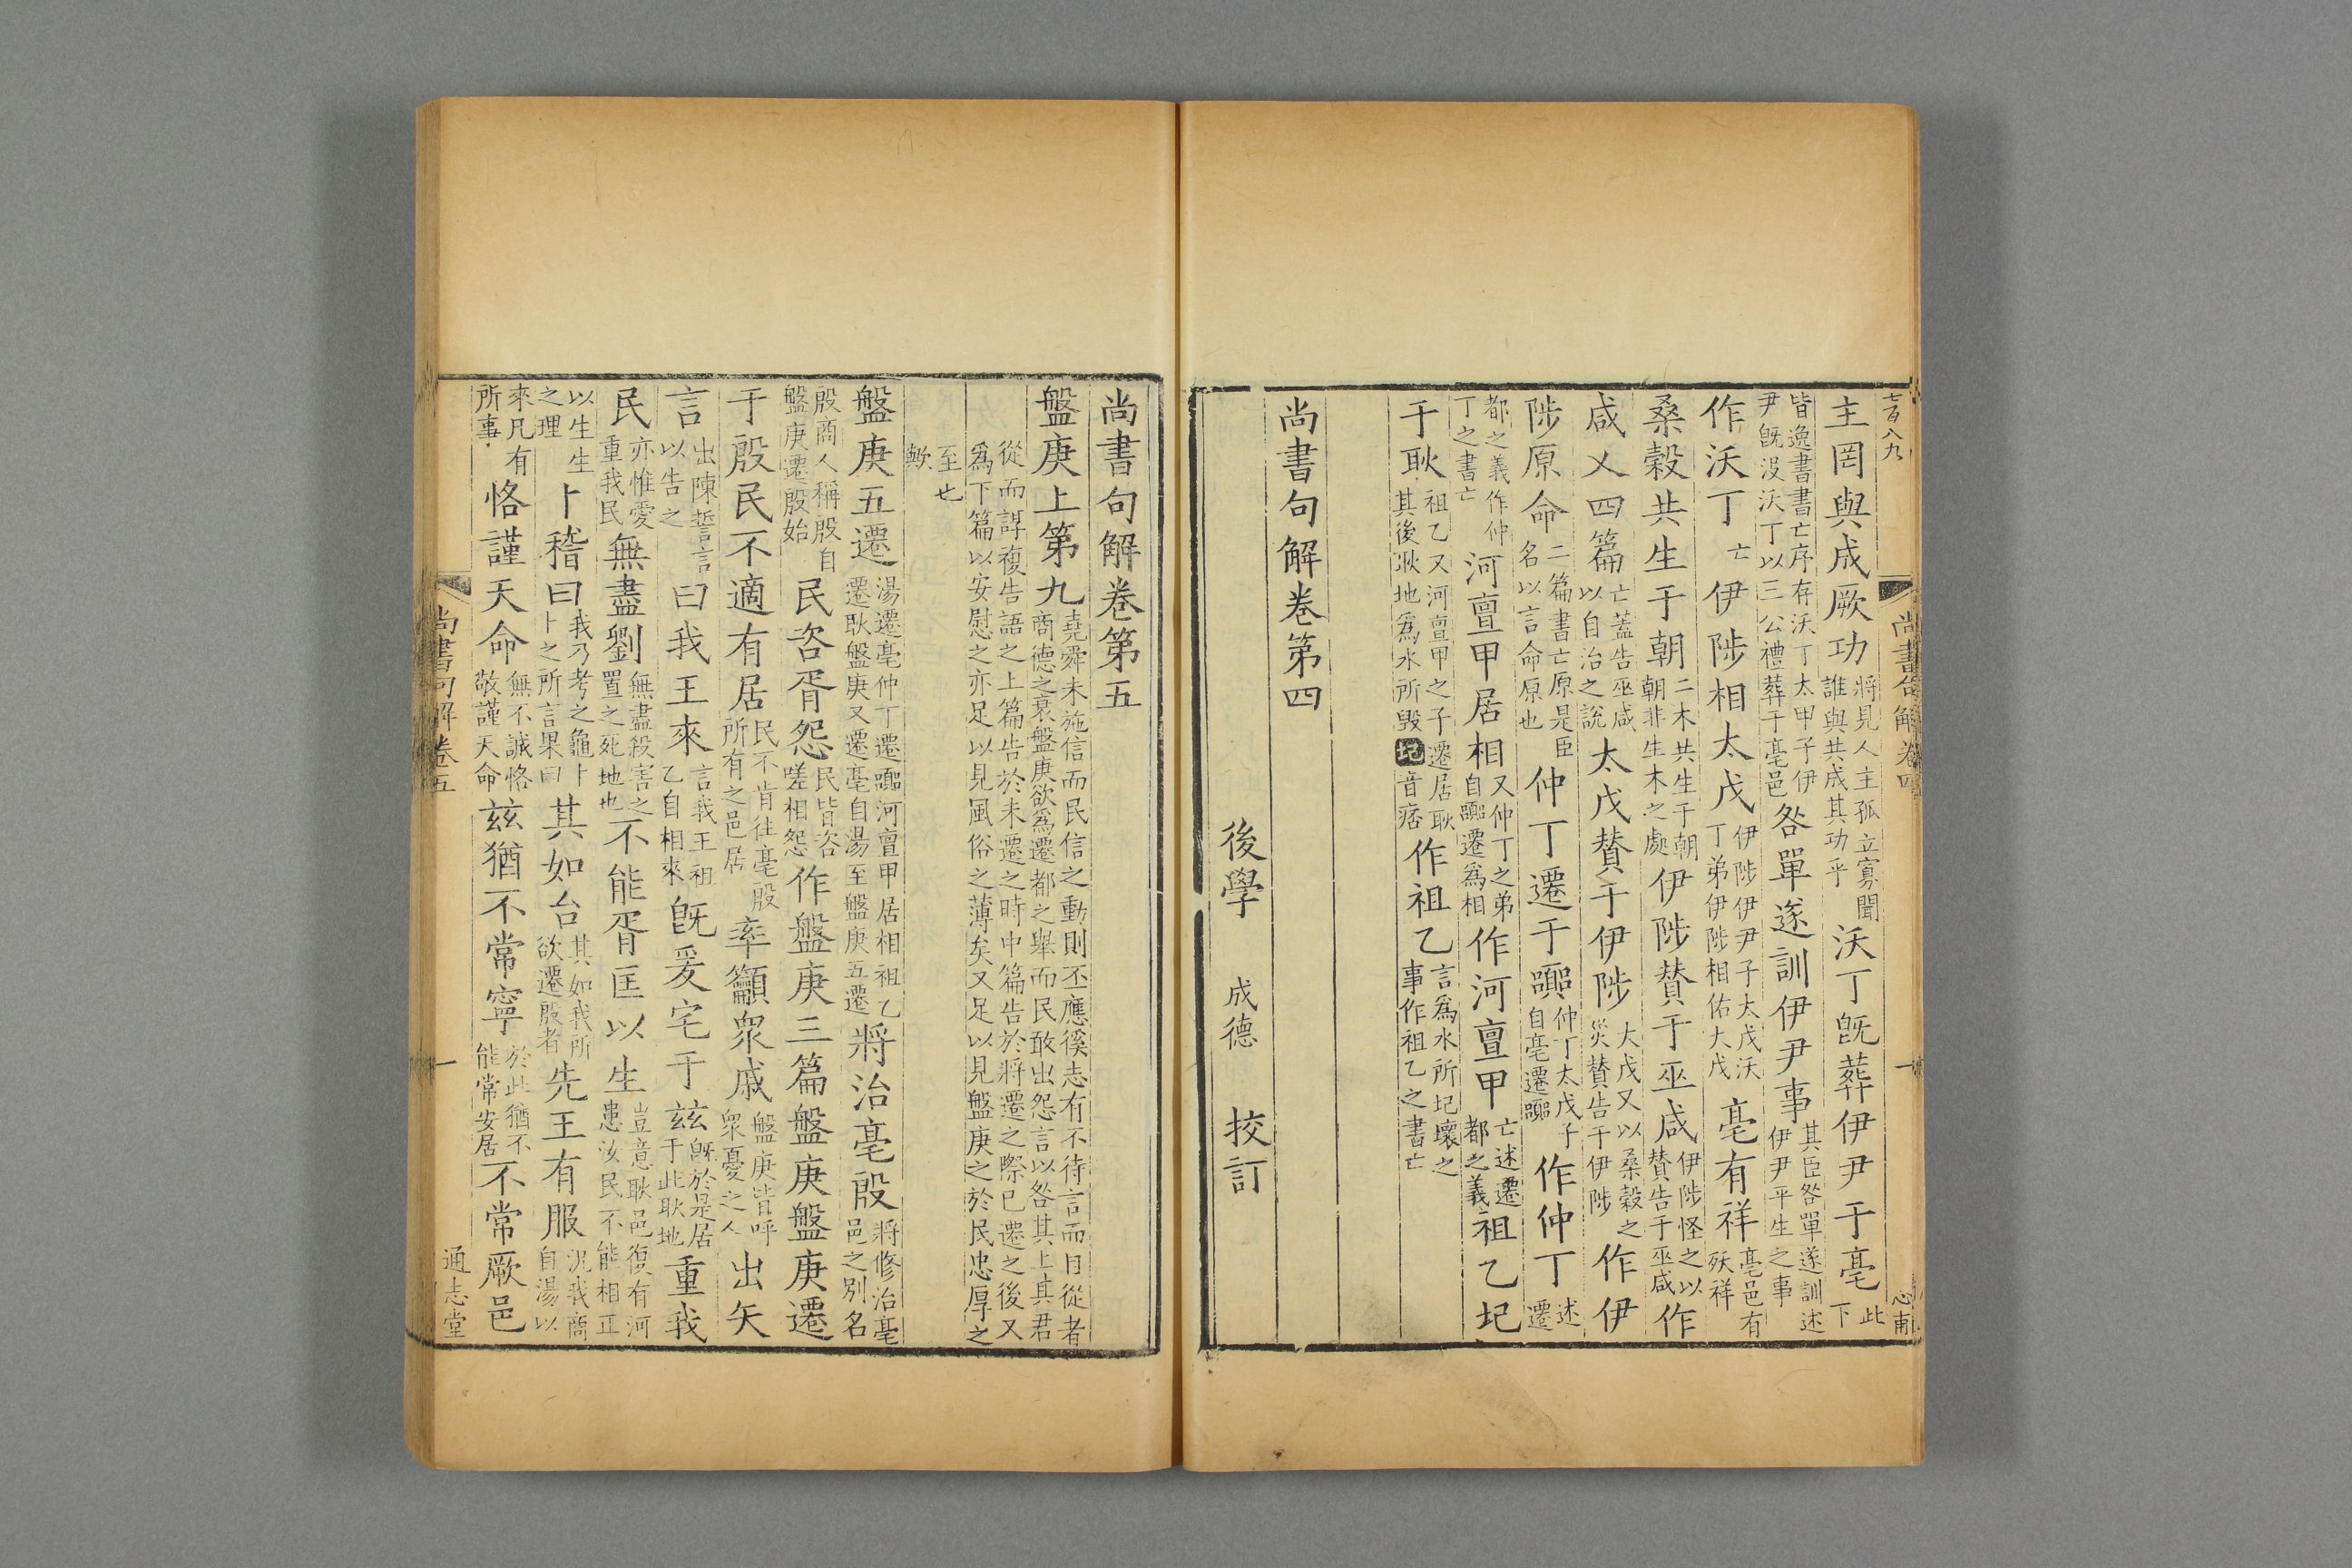 七百八九
尚書句解卷四
一
心甫
主罔與成厥功將見人主孤立寡聞誰與共成其功乎沃丁旣葬伊尹于亳此下
皆逸書書亡序存沃丁太甲子伊尹旣沒沃丁以三公禮葬于亳邑咎單遂訓伊尹事其臣咎單遂訓述伊尹平生之事
作沃丁亡伊陟相太戊伊陟伊尹子太戊沃丁弟伊陟相佑大戊亳有祥亳邑有殀祥
桑榖共生于朝二木共生于朝朝非生木之處伊陟贊于巫咸伊陟怪之以贊告于巫咸作
咸乂四篇亡蓋告巫咸以自治之說太戊贊于伊陟大戊又以桑榖之災贊告于伊陟作伊
陟原命二篇書亡原是臣名以言命原也仲丁遷于嚻仲丁太戊子自亳遷嚻作仲丁述遷
都之義作仲丁之書亡河亶甲居相又仲丁之弟自嚻遷爲相作河亶甲亡述遷都之義祖乙圮
于耿祖乙又河亶甲之子遷居耿其後耿地爲水所毀圮音痞作祖乙言爲水所圮壞之事作祖乙之書亡
尚書句解卷第四
後學 成德 挍訂
尚書句解卷第五
盤庚上第九堯舜未施信而民信之動則丕應徯志有不待言而目從者商德之衰盤庚欲爲遷都之舉而民敢出怨言以咎其上眞君
從而諄複告語之上篇告於未遷之時中篇告於將遷之際已遷之後又爲下篇以安慰之亦足以見風俗之薄矣又足以見盤庚之於民忠厚之
至也歟
盤庚五遷湯遷亳仲丁遷嚻河亶甲居相祖乙遷耿盤庚又遷亳自湯至盤庚五遷將治亳殷將修治亳邑之別名
殷商人稱殷自盤庚遷殷始民咨胥怨民皆咨嗟相怨作盤庚三篇盤庚盤庚遷
于殷民不適有居民不肯往亳殷所有之邑居率籲衆戚盤庚皆呼衆憂之人出矢
言出陳誓言以告之曰我王來言我王祖乙自相來旣爰宅于茲旣於是居于此耿地重我
民亦惟愛重我民無盡劉無盡殺害之置之死地也不能胥匡以生豈意耿邑復有河患汝民不能相正
以生生之理卜稽曰我乃考之龜卜卜之所言果曰其如台其如我所欲遷殷者先王有服況我商自湯以
來凡有所事恪謹天命無不誠恪敬謹天命茲猶不常寧於此猶不能常安居不常厥邑
尚書句解卷五
一
通志堂